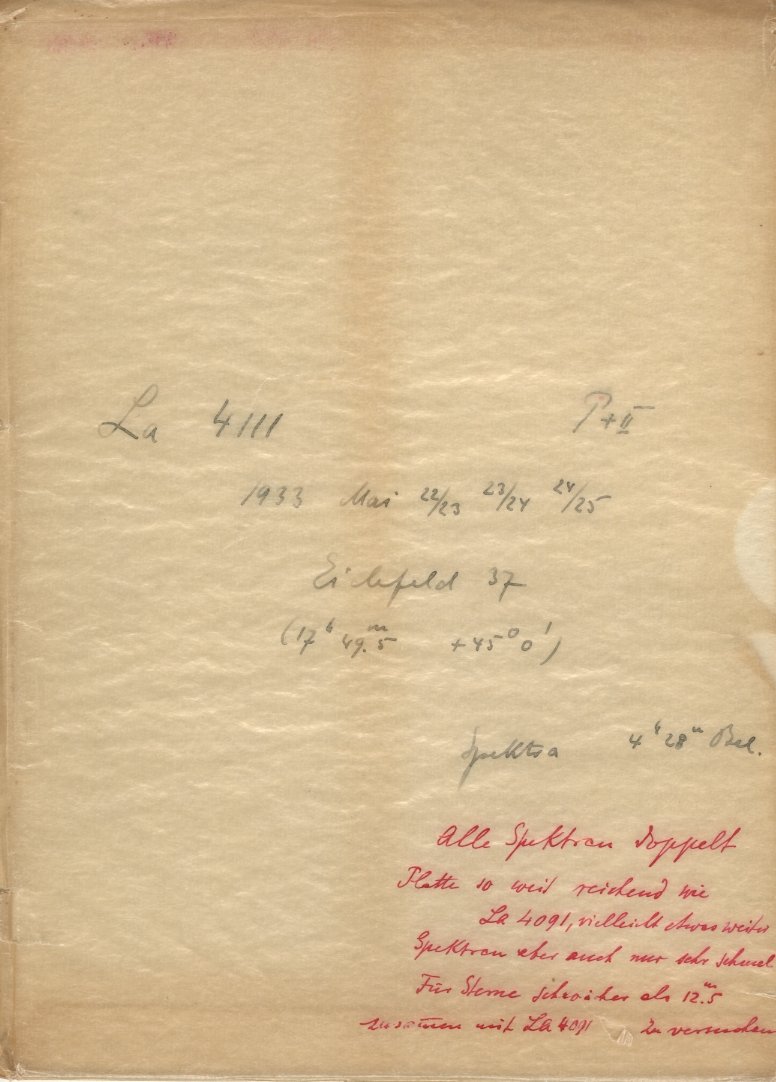 La 4111 P+II
1933 Mai 22/23 23/24 24/25
Eichfeld 37
(17h 49.m5 +45° 0')
Spektra 4h 28m Bel.
Alle Spektren doppelt
Platte so weit reichend wie
La 4091, vielleicht etwas weiter
Spektren aber auch nur sehr schmal
Für Sterne schwächer als 12.m5
zusammen mit La 4091 zu vermessen